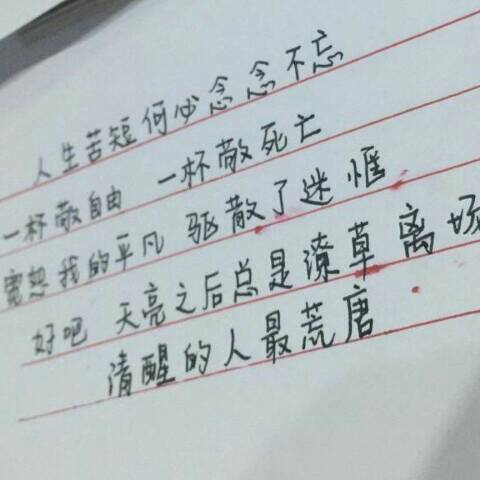 人生苦短何必念念不忘
一杯敬自由 一杯敬死亡
宽恕我的平凡 驱散了迷惘
好吧 天亮之后总是潦草离场
清醒的人最荒唐